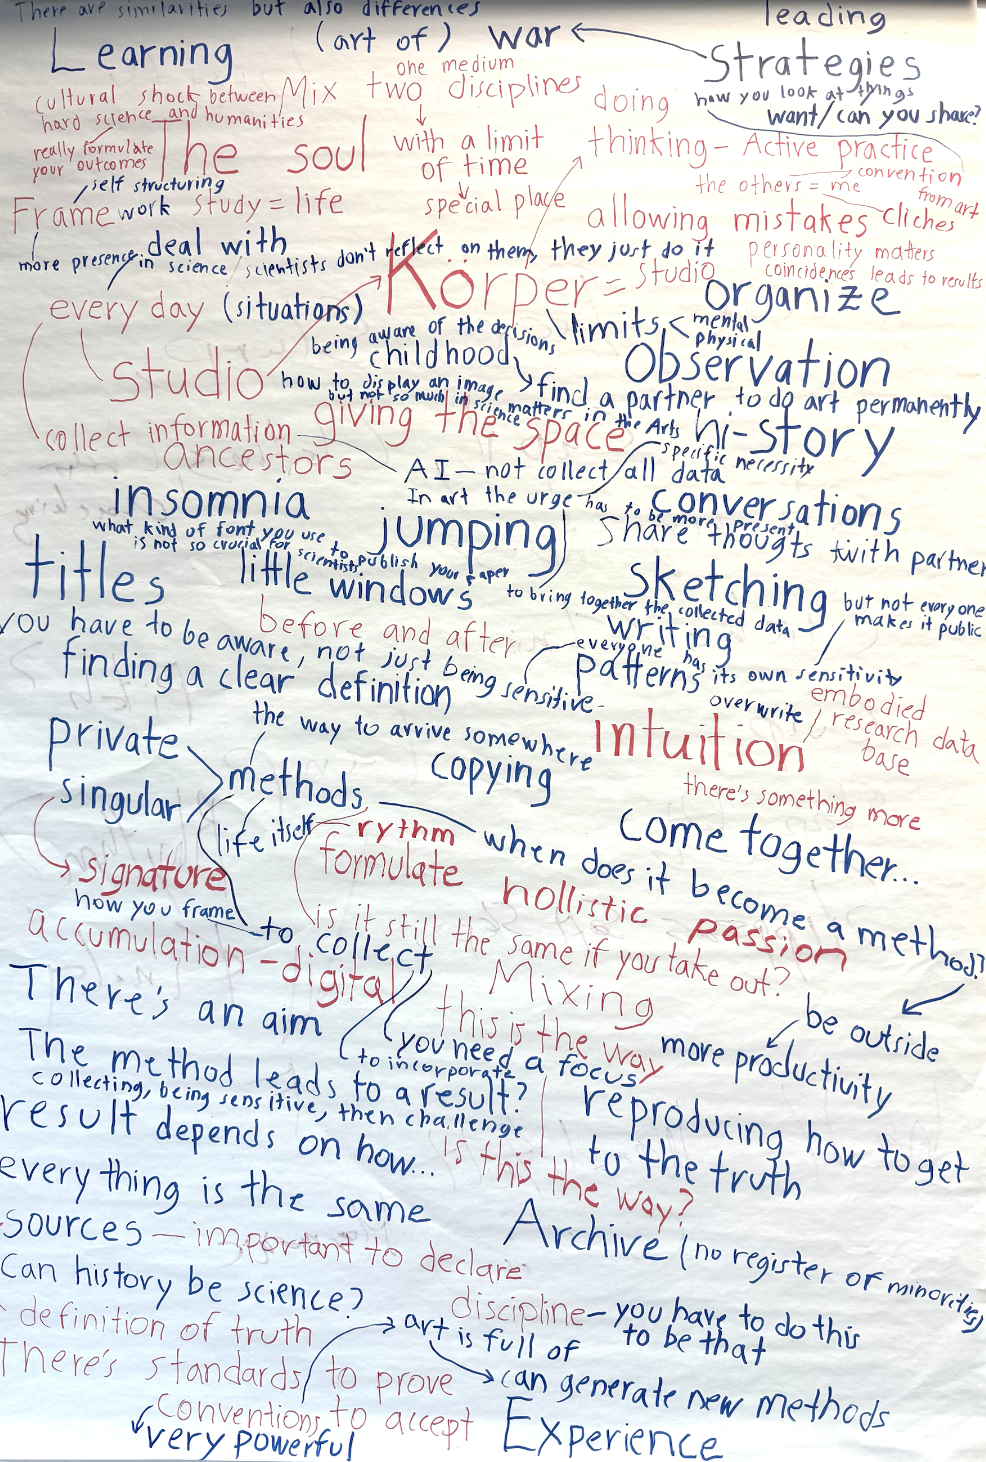 There are similarities but also differences
leading
Learning
(art of) war
Strategies
one medium
how you look at things
want/can you share?
cultural shock between
hard science and humanities
Mix two disciplines
doing
really formulate
your outcomes
The soul
with a limit
of time
thinking - Active practice
convention
from art
self structuring
special place
the others = me
cliches
Framework study = life
allowing mistakes
more presence in science / scientists don't reflect on them, they just do it
deal with
personality matters
coincidences leads to results
Körper = studio
every day (situations)
organize
limits < mental
physical
being aware of the decisions
childhood
Observation
studio
how to display an image matters in the Arts
but not so much in science
find a partner to do art permanently
giving the space
hi-story
collect information
ancestors
specific necessity
AI - not collect all data
In art the urge has to be more present
insomnia
conversations
what kind of font you use to publish your paper
is not so crucial for scientists
jumping
share thougts twith partner
titles
little windows
sketching
to bring together the collected data
but not everyone
makes it public
before and after
writing
you have to be aware, not just being sensitive -
everyone has its own sensitivity
finding a clear definition
patterns
overwrite
embodied
research data
base
private
the way to arrive somewhere
Intuition
singular
methods
copying
there's something more
life itself
rythm
when does it become a method?
come together...
signature
formulate
hollistic passion
how you frame
accumulation - digital
to collect
is it still the same if you take out?
There's an aim
Mixing
be outside
this is the way
more productivity
The method leads to a result?
to incorporate
you need a focus
collecting, being sensitive, then challenge
reproducing how to get
to the truth
result depends on how...
is this the way?
everything is the same
sources - important to declare
Archive (no register of minorities)
Can history be science?
definition of truth
discipline - you have to do this
to be that
art is full of
There's standards to prove
can generate new methods
Conventions to accept
very powerful
Experience